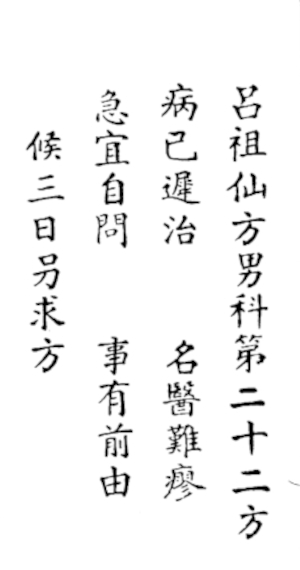 呂祖仙方男科第二十二方
病已遲治　名醫難瘳
急宜自問　事有前由
候三日另求方